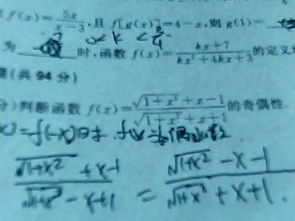 f(x) = \frac{5x}{x-3}, 且 f[g(x)] = 4-x, 则 g(1) =
为 时, 函数 f(x) = \frac{kx+7}{kx^2+4kx+3} 的定义
(共 94 分)
)判断函数 f(x) = \frac{\sqrt{1+x^2}+x-1}{\sqrt{1+x^2}+x+1} 的奇偶性.
f(-x)时. f(x)为偶函数
\frac{\sqrt{1+x^2}+x-1}{\sqrt{1+x^2}-x+1} = \frac{\sqrt{1+x^2}-x-1}{\sqrt{1+x^2}+x+1}.